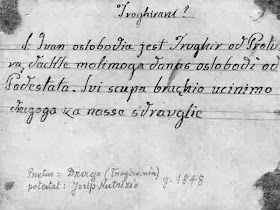 Troghirani?
S. Ivan oslobodia jest Troghir od Pretu
ra, dackle molimoga danas oslobodi od
Podestata. Svi scupa brachio ucinimo
drugoga za nasse sdravglie
Pretur = Drago (Troghiranin)
potestat: Josip Nutrizio g. 1848